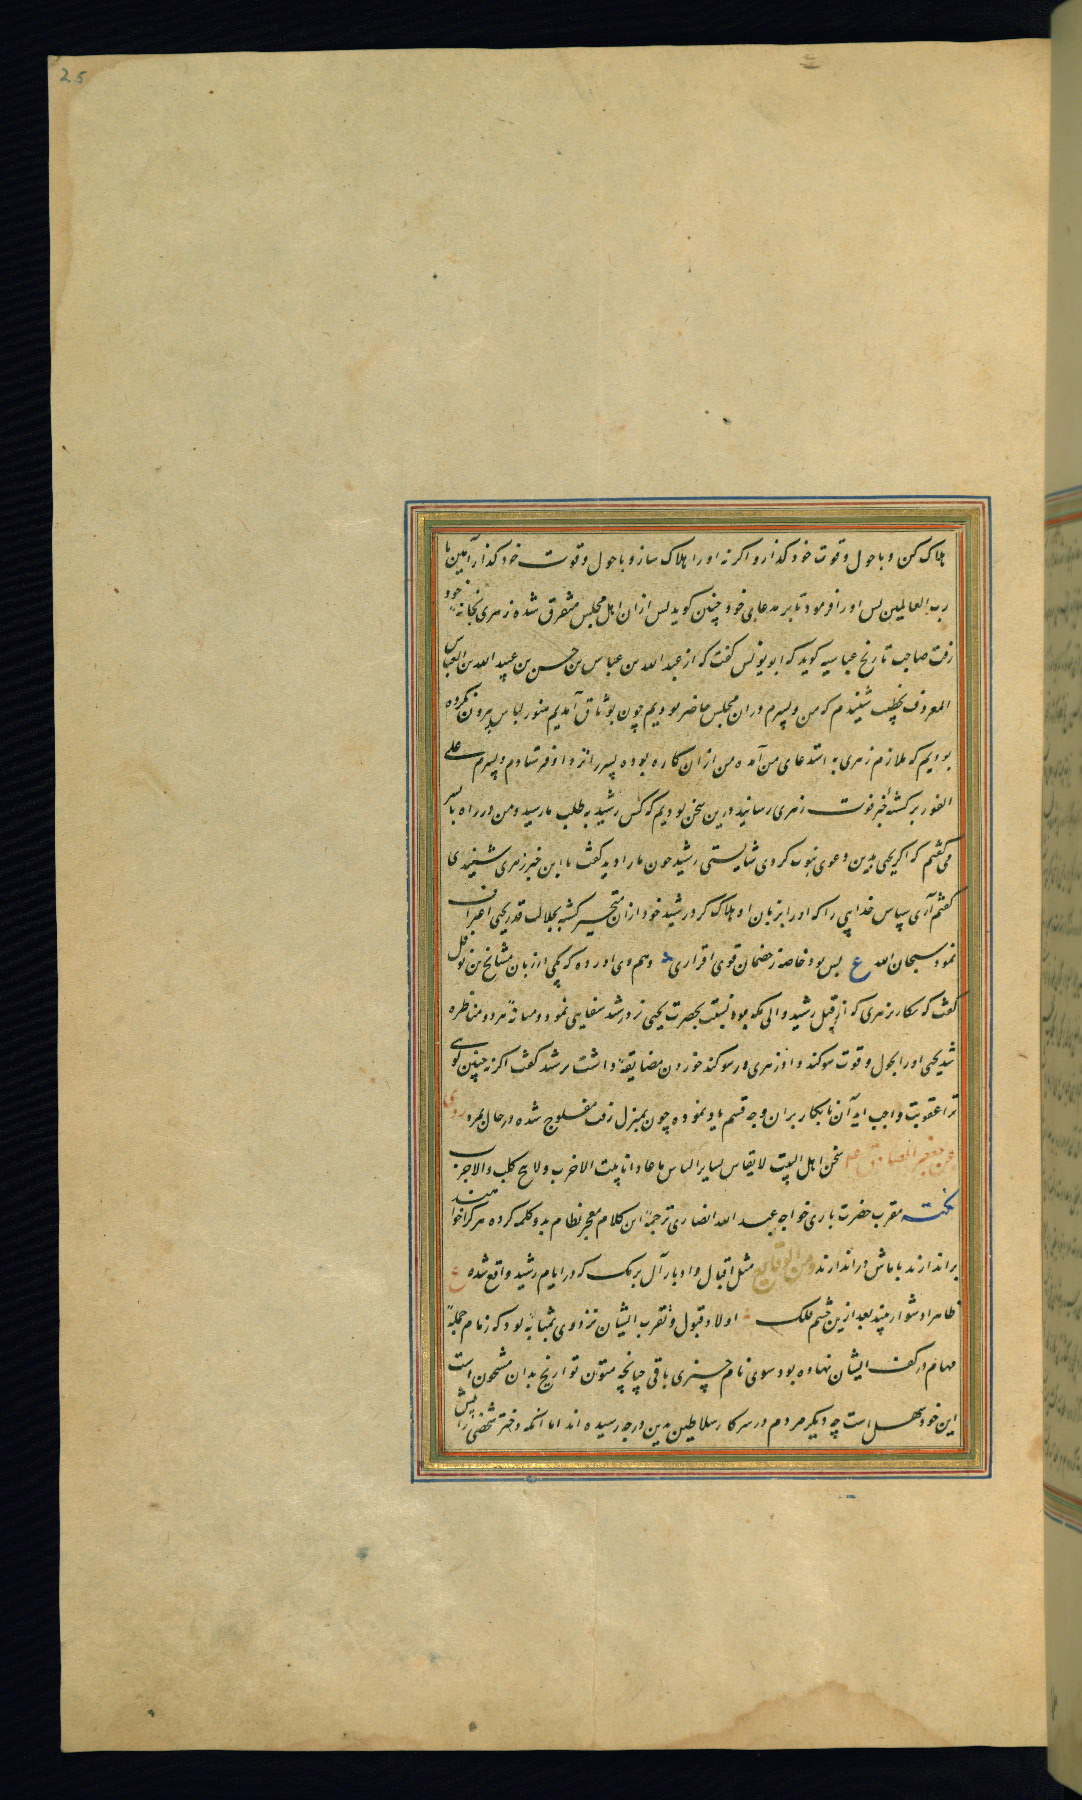 25
هلاک کن و با حول و قوت خود گذار و اگر نه او را هلاک ساز و با حول و قوت خود گذار آمین یا
رب العالمین پس او را فرمود تا بر مدعای خود چنین گوید پس از ان اهل مجلس متفرق شده زهری بخانه خود
رفت صاحب تاریخ عباسیه گوید که ابو یونس گفت که از عبد الله بن عباس بن حسن بن عبید الله بن العباس
المعروف بخطیب شنیدم که من و پسرم دران مجلس حاضر بودیم چون بوثاق آمدیم هنوز لباس بیرون نکرده
بودیم که ملازم زهری به استدعای من آمده من ازان کاره بوده پسر را نزد او فرستادم و پسرم علی
الفور برگشته خبر فوت زهری رسانید درین سخن بودیم که کس رشید به طلب ما رسید و من در راه با پسر
می گفتم که اگر یحیی بدین دعوی نبوت کردی شایستی رشید چون ما را دید گفت یا ابن خبر زهری شنیدی
گفتم آری سپاس خدایی را که او را بزبان او هلاک کرد رشید خود ازان متحیر گشته بجلالت قدر یحیی اعتراف
نمود سبحان الله ع بس بود خاصه ز خصمان قوی اقراری و هم وی آورده که یکی از زبان مشایخ بن نوفل
گفت که بکار زهری که از قبل رشید والی مکه بود نسبت بحضرت یحیی نزد رشید سفایی نمود و میانه هر دو مناظره
شد یحیی او را بحول و قوت سوگند داد زهری در سوگند خوردن مضایقه داشت رشید گفت اگر نه چنین گویی
ترا عقوبت واجب آید آن نابکار بران وجه قسم یاد نموده چون بمنزل رفت مفلوج شده در حال بمرد روی
عن جعفر الصادق عم نحن اهل البیت لا یقاس بسایر الناس ما عادانا بیت الا خرب و لا کلب و الا جرب
نکته مقرب حضرت باری خواجه عبد الله انصاری ترجمه این کلام معجز نظام بدو کلمه کرده هر که را خواهند
براندازند با ماش دراندازند ومن الوقایع مثل اقبال و ادبار آل برمک که در ایام رشید واقع شده ع
ظاهرا دشوار بیند بعد ازین چشم فلک اولا و قبول و تقرب ایشان نزد وی بمثابه بود که زمام جمله
مهام در کف ایشان نهاده بود سوی نام چیزی باقی چنانچه متون تواریخ بدان مشحون است
این خود سهل است چه دیگر مردم در سرکار سلاطین بدین درجه رسیده اند اما آنکه دختر شخصی را پیش